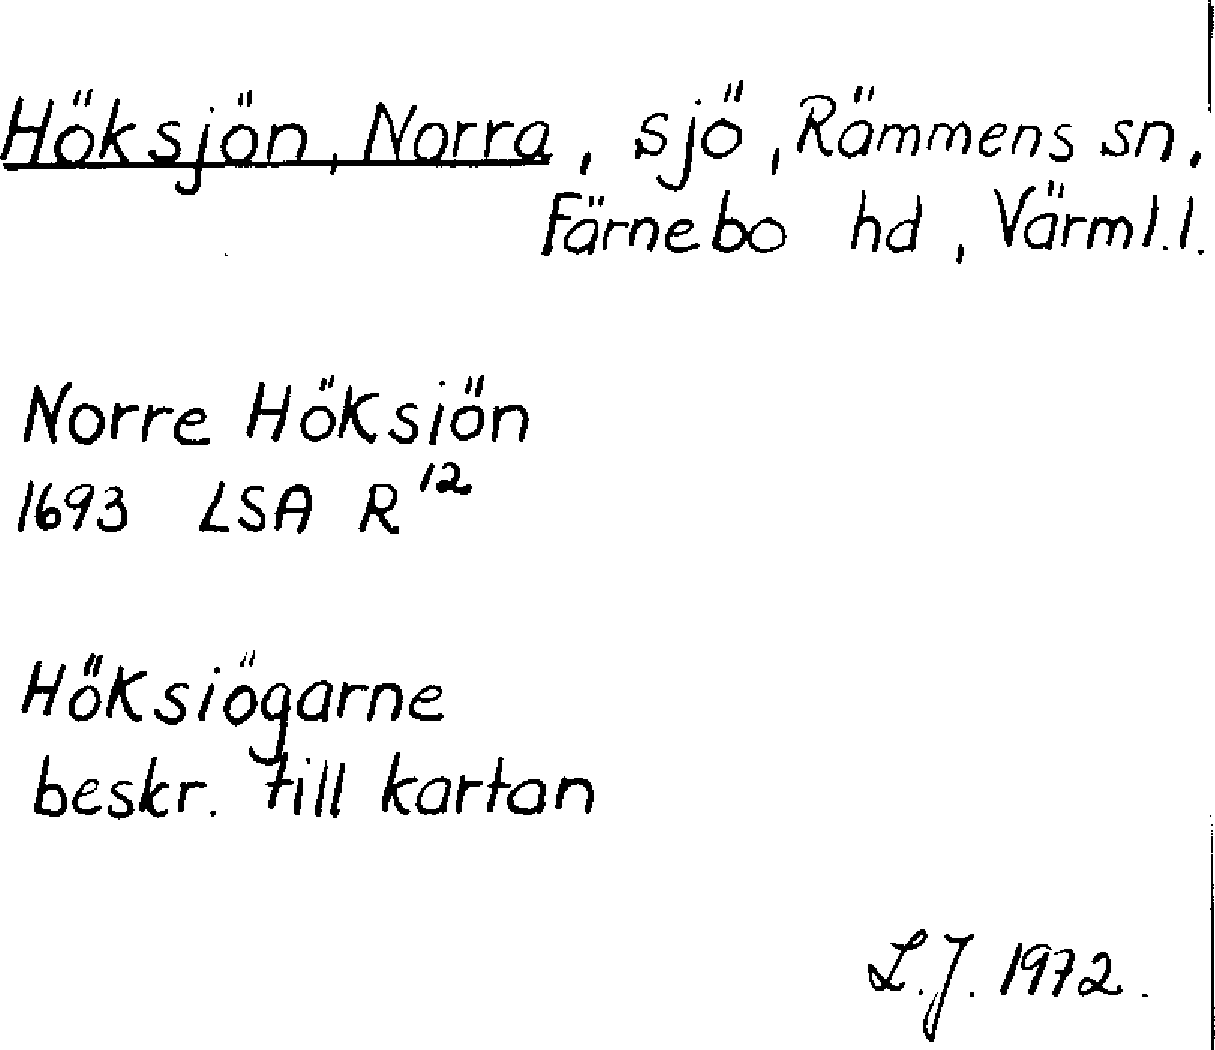 Höksjön, Norra, sjö, Rämmens sn,
Färnebo hd, Värml.l.
Norre Höksiön
1693 LSA R¹²
Höksiögarne
beskr. till kartan
L.J. 1972.